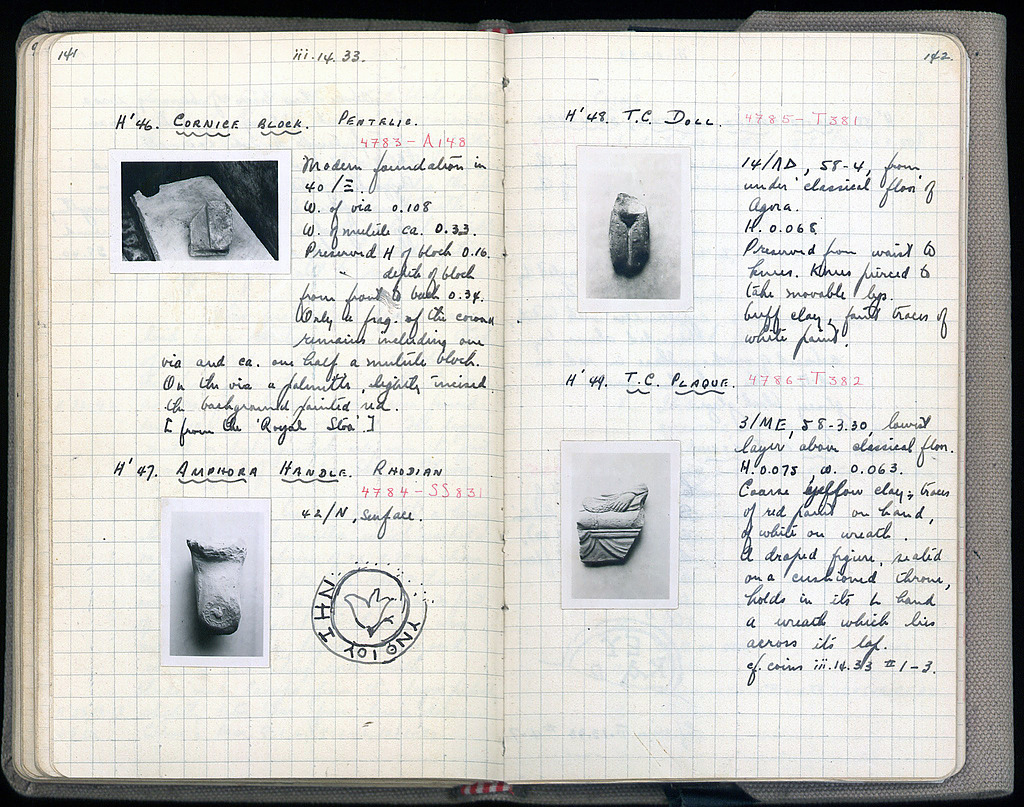 141
iii.14.33.
H'46. CORNICE BLOCK. PENTELIC.
4783-A148
Modern foundation in
40/Ξ.
W. of via 0.108
W. of mutule ca. 0.33.
Preserved H of block 0.16.
" depth of block
from front to back 0.34.
Only a frag. of the corona
remains including one
via and ca. one half a mutule block.
On the via a palmette, lightly incised.
the background painted red.
[from the 'Royal Stoa'.]
H'47. AMPHORA HANDLE. RHODIAN
4784-SS831
42/N, surface.
142.
H'48. T.C. DOLL. 4785-T381
14/ΛΔ, 58-4, from
under classical floor of
Agora.
H. 0.068
Preserved from waist to
knees. Knees pierced to
take movable legs.
buff clay, faint traces of
white paint.
H'49. T.C. PLAQUE. 4786-T382
3/ME, 58-3.30, lowest
layer above classical floor.
H. 0.075 W. 0.063.
Coarse yellow clay; traces
of red paint on hand,
of white on wreath.
A draped figure, seated
on a cushioned throne,
holds in its L hand
a wreath which lies
across its lap.
cf. coins iii.14.33 # 1-3.